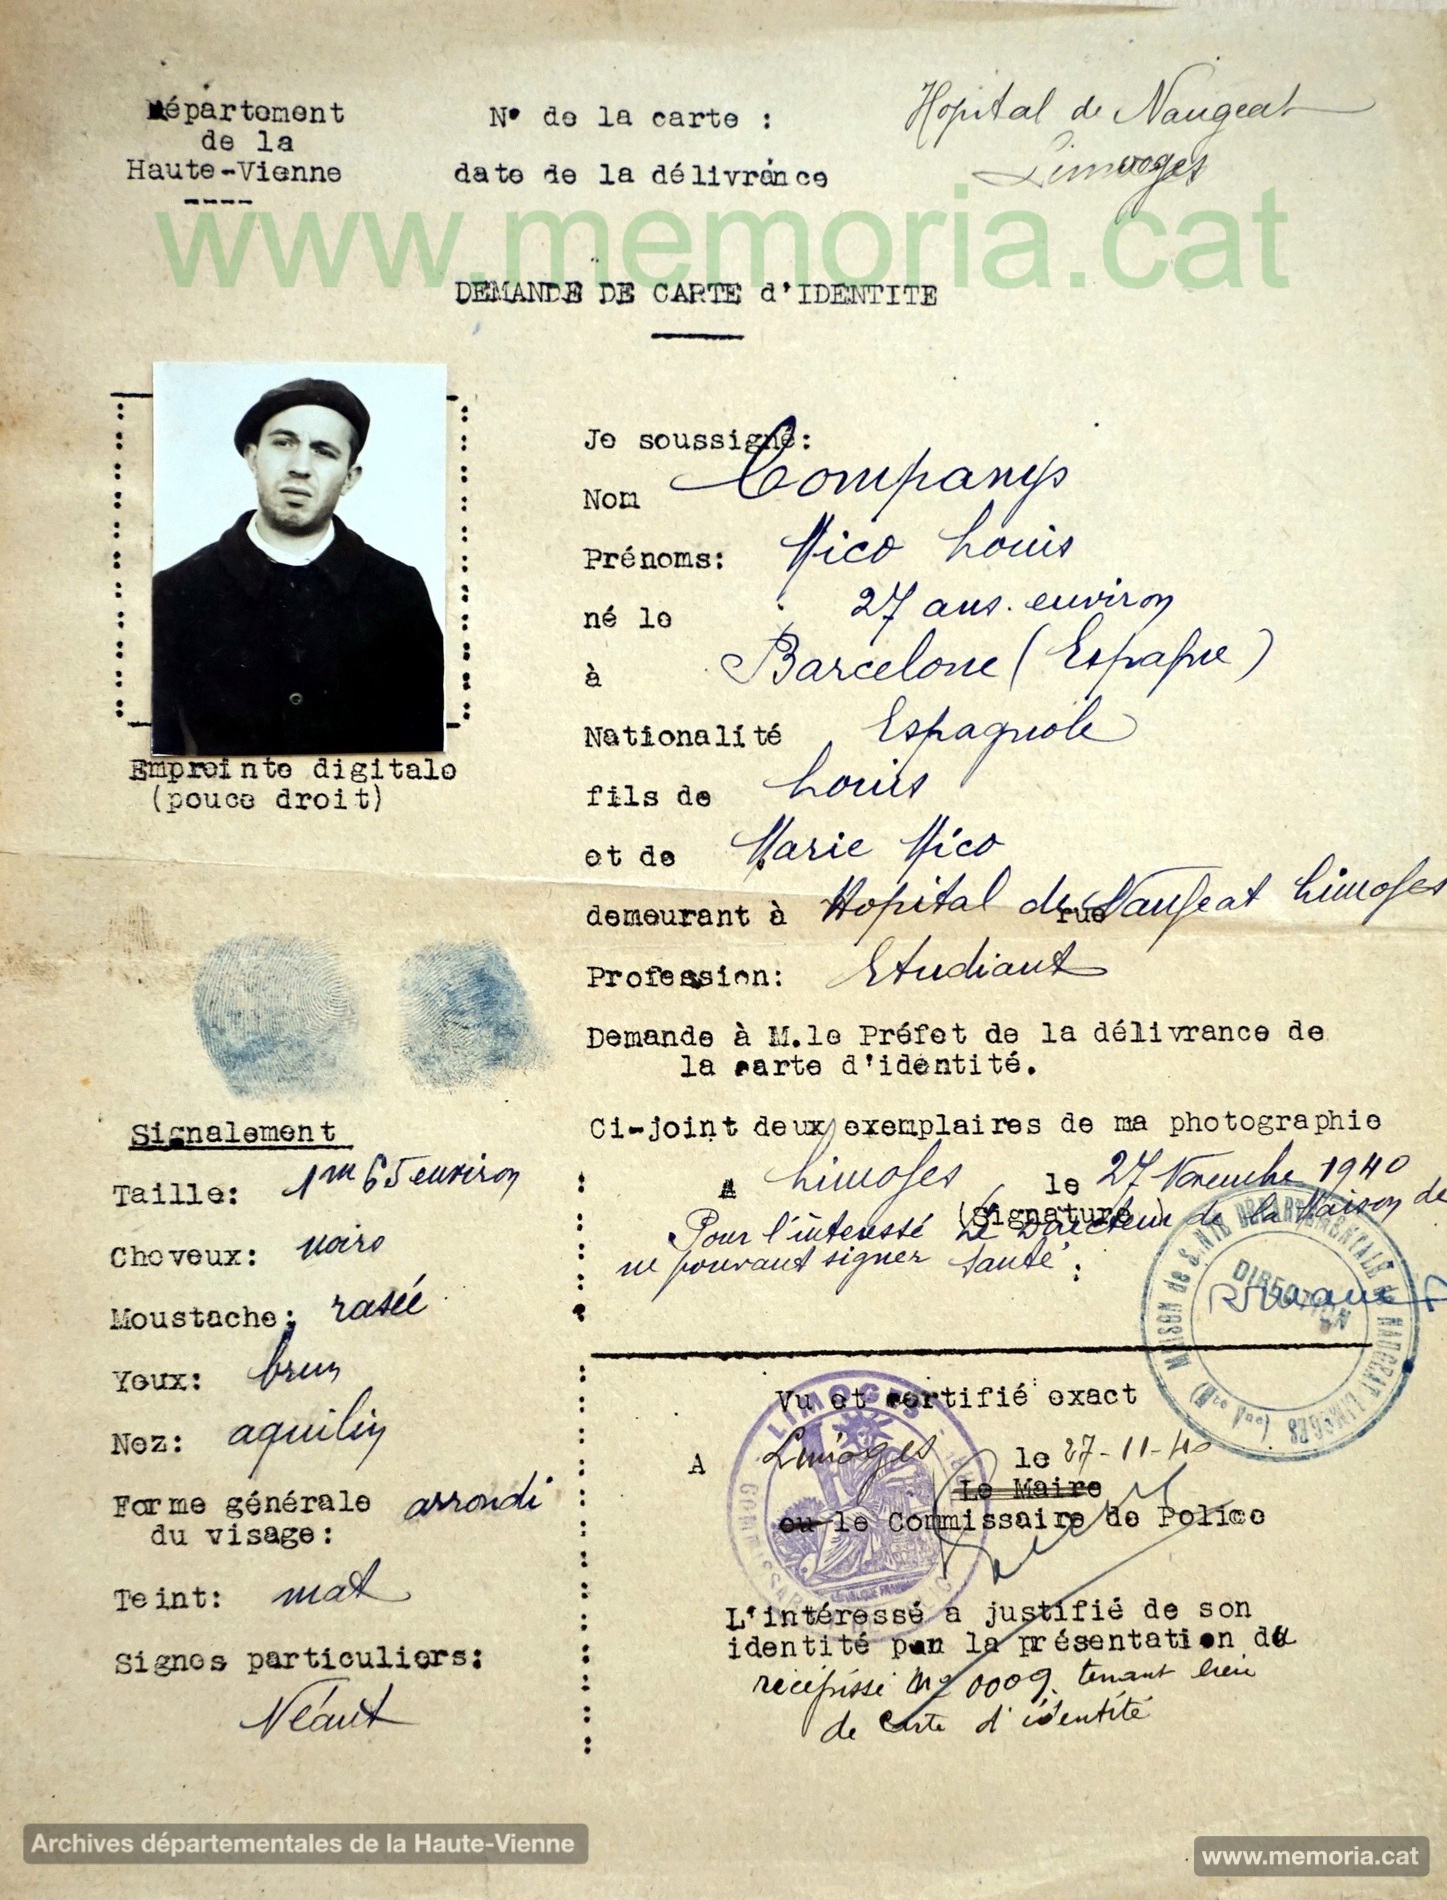 Département
de la
Haute-Vienne
N° de la carte :
date de la délivrance
Hopital de Naugeat
Limoges
www.memoria.cat
DEMANDE DE CARTE d'IDENTITE
Je soussigné:
Nom Companys
Prénoms: Mico Louis
né le 27 ans. environ
à Barcelone (Espagne)
Nationalité Espagnole
fils de Louis
et de Marie Mico
demeurant à Hopital de Naugeat Limoges
rue
Profession: Etudiant
Demande à M.le Préfet de la délivrance de
la carte d'identité.
Ci-joint deux exemplaires de ma photographie
A Limoges le 27 Novembre 1940
(Signature)
Pour l'intéressé Le Directeur de la Maison de
ne pouvant signer Santé :
Empreinte digitale
(pouce droit)
Signalement
Taille: 1m65 environ
Cheveux: noirs
Moustache: rasée
Yeux: brun
Nez: aquilin
Forme générale arrondi
du visage:
Teint: mat
Signes particuliers:
Néant
MAISON de S.NTE DEPARTEMENTALE de NAUGEAT LIMOGES
DIRECTION
Vu et certifié exact
A Limoges le 27-11-40
Le Maire
ou le Commissaire de Police
LIMOGES
L'intéressé a justifié de son
identité par la présentation du
récépissé n° 0009 tenant lieu
de carte d'identité
Archives départementales de la Haute-Vienne
www.memoria.cat